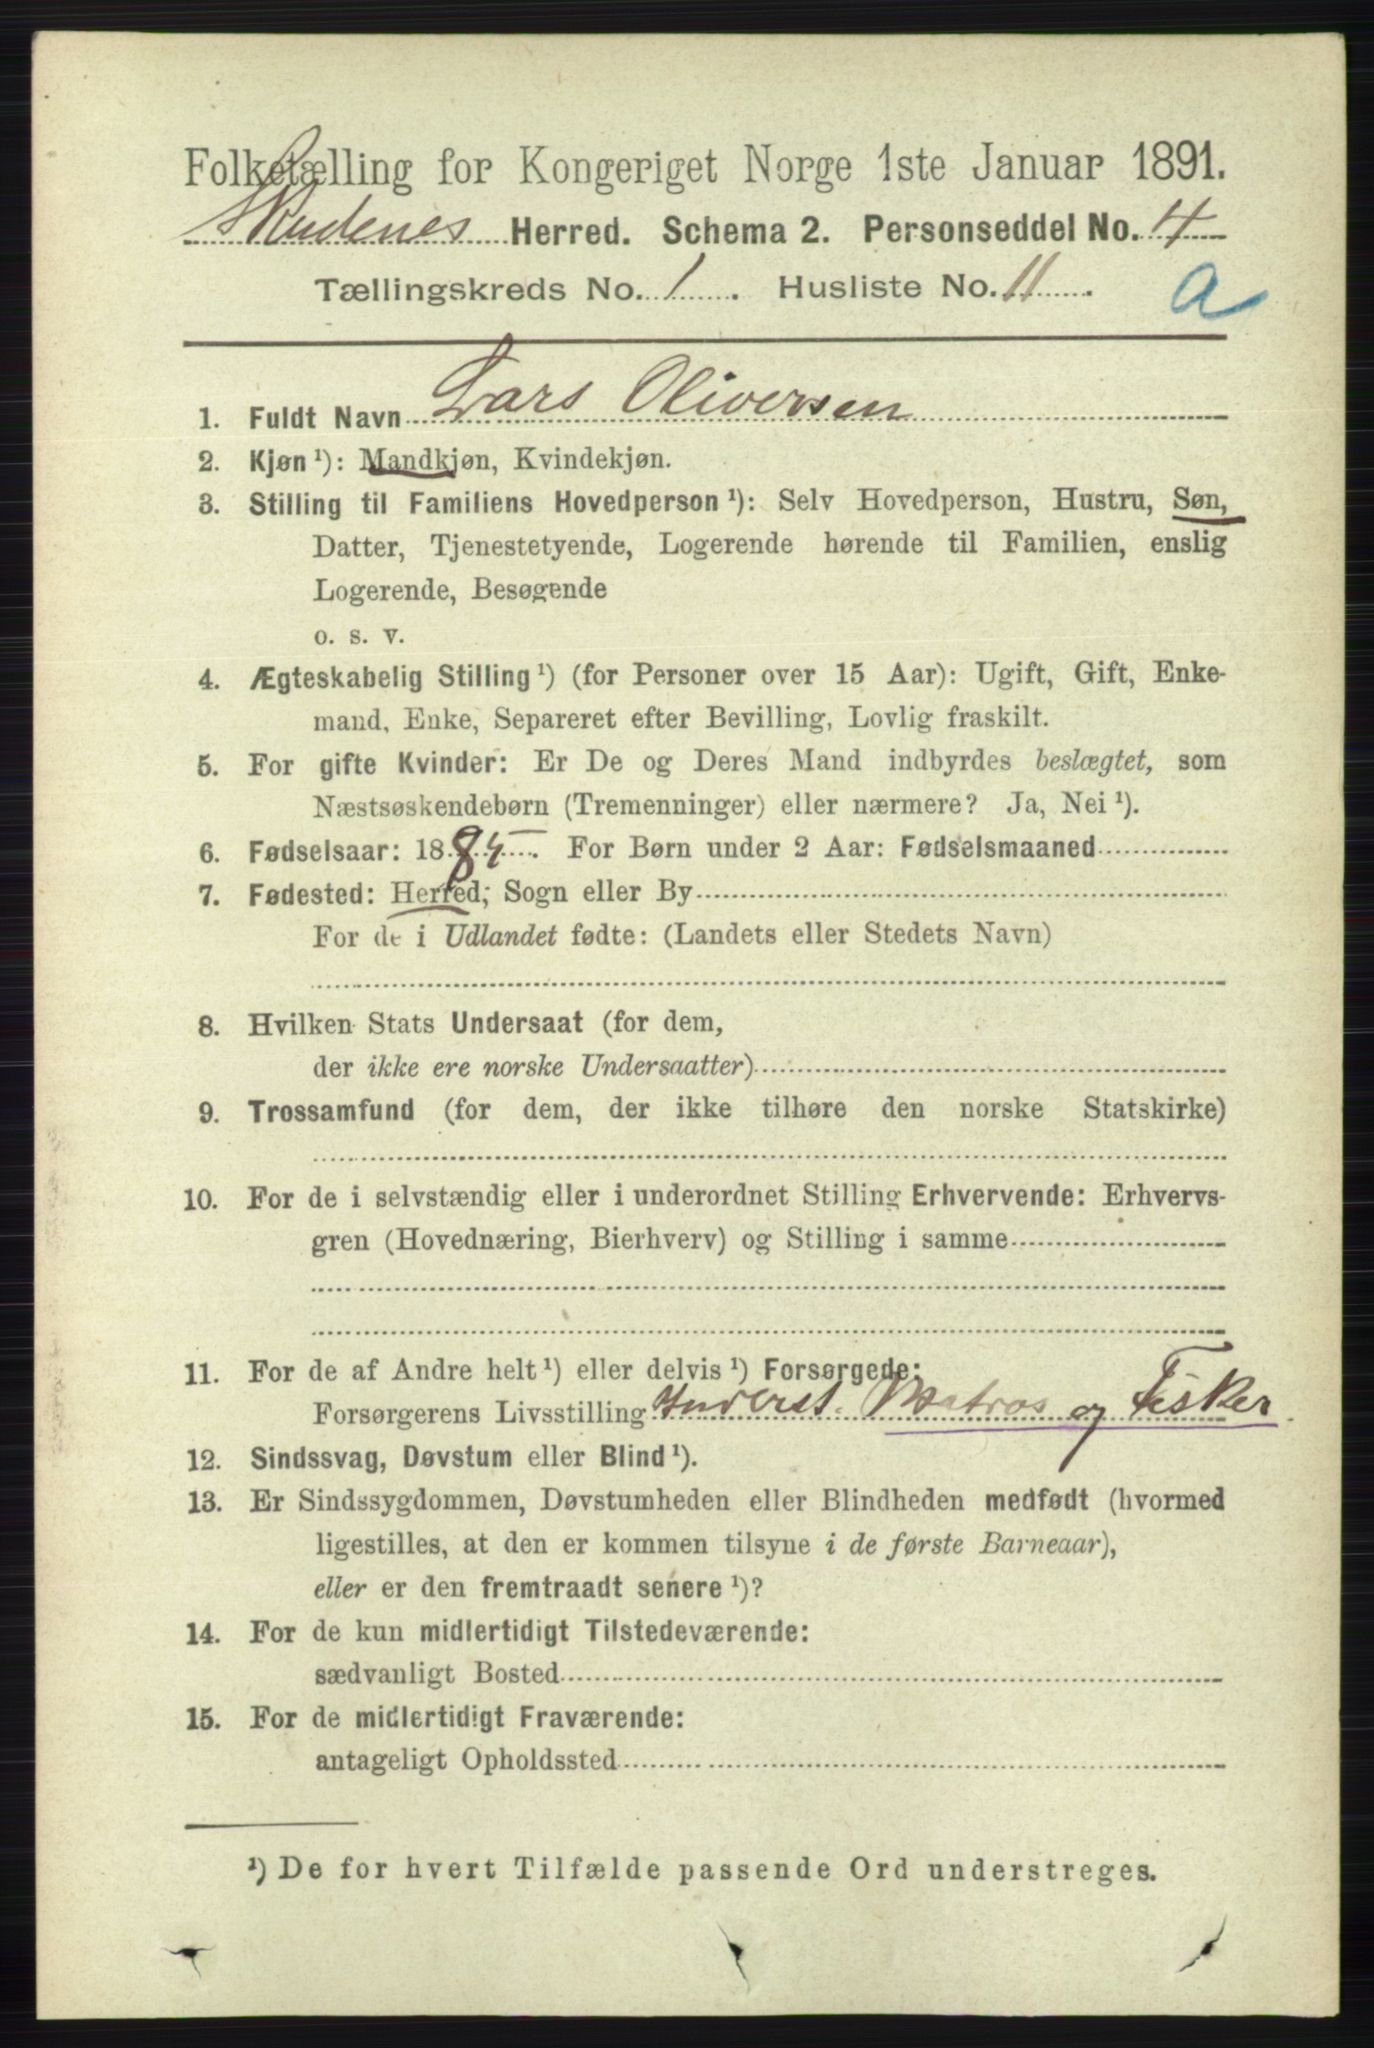 Folketælling for Kongeriget Norge 1ste Januar 1891.
Skudenes Herred. Schema 2. Personseddel No. 4
Tællingskreds No. 1. Husliste No. 11. a
1. Fuldt Navn Lars Oliversen
2. Kjøn ¹): Mandkjøn, Kvindekjøn.
3. Stilling til Familiens Hovedperson ¹): Selv Hovedperson, Hustru, Søn,
Datter, Tjenestetyende, Logerende hørende til Familien, enslig
Logerende, Besøgende
o. s. v.
4. Ægteskabelig Stilling ¹) (for Personer over 15 Aar): Ugift, Gift, Enke-
mand, Enke, Separeret efter Bevilling, Lovlig fraskilt.
5. For gifte Kvinder: Er De og Deres Mand indbyrdes beslægtet, som
Næstsøskendebørn (Tremenninger) eller nærmere? Ja, Nei ¹).
6. Fødselsaar: 1885. For Børn under 2 Aar: Fødselsmaaned
7. Fødested: Herred; Sogn eller By
For de i Udlandet fødte: (Landets eller Stedets Navn)
8. Hvilken Stats Undersaat (for dem,
der ikke ere norske Undersaatter)
9. Trossamfund (for dem, der ikke tilhøre den norske Statskirke)
10. For de i selvstændig eller i underordnet Stilling Erhvervende: Erhvervs-
gren (Hovednæring, Bierhverv) og Stilling i samme
11. For de af Andre helt ¹) eller delvis ¹) Forsørgede:
Forsørgerens Livsstilling Inderst. Matros og Fisker
12. Sindssvag, Døvstum eller Blind ¹).
13. Er Sindssygdommen, Døvstumheden eller Blindheden medfødt (hvormed
ligestilles, at den er kommen tilsyne i de første Barneaar),
eller er den fremtraadt senere ¹)?
14. For de kun midlertidigt Tilstedeværende:
sædvanligt Bosted
15. For de midlertidigt Fraværende:
antageligt Opholdssted
¹) De for hvert Tilfælde passende Ord understreges.